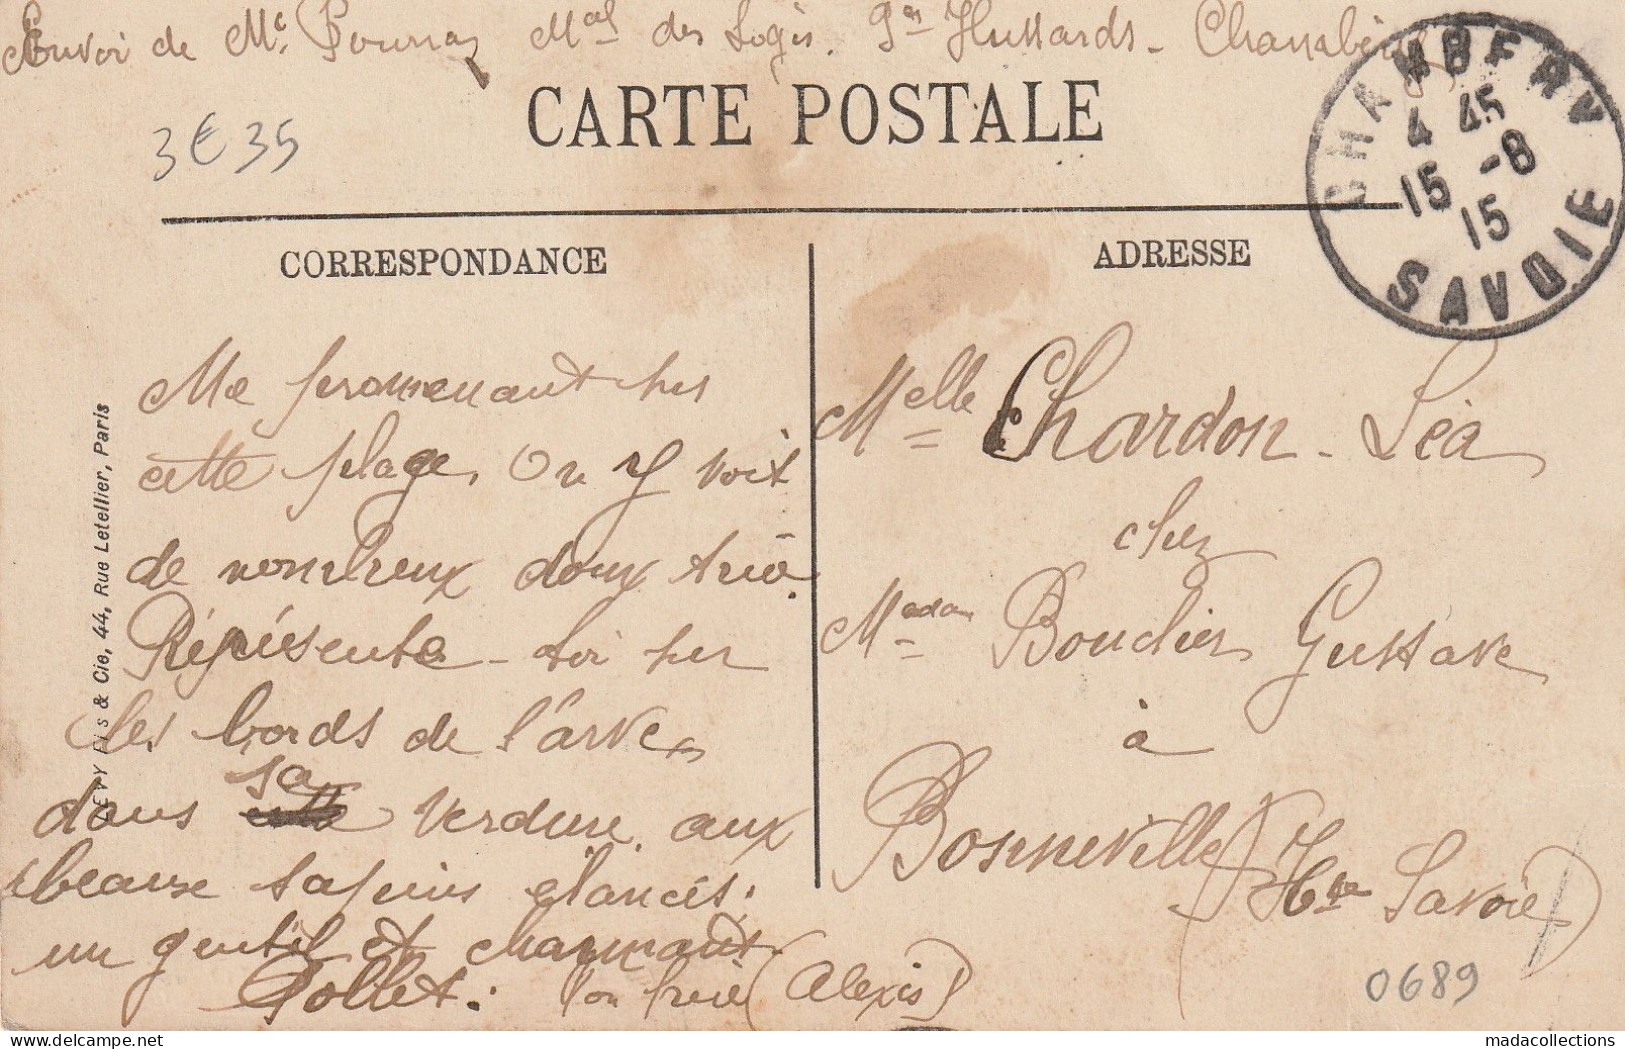 Envoi de Mc. Pourraz Mal des Logis. 9es Hussards - Chambéry
CARTE POSTALE
3€35
CHAMBERY
4 45
15 -8
15
SAVOIE
CORRESPONDANCE
ADRESSE
Me promenant sur
cette plage, On y voit
de nombreux doux
Représente-toi sur
les bords de l'arve,
dans sa verdure, aux
beaux sapins élancés,
un gentil et charmant
Pollet. Ton frère (Alexis)
Melle Chardon - Léa
chez
Madame Boudier Gustave
à
Bonneville
(Hte Savoie)
LEVY Fils & Cie, 44, Rue Letellier, Paris
0689
madacollections